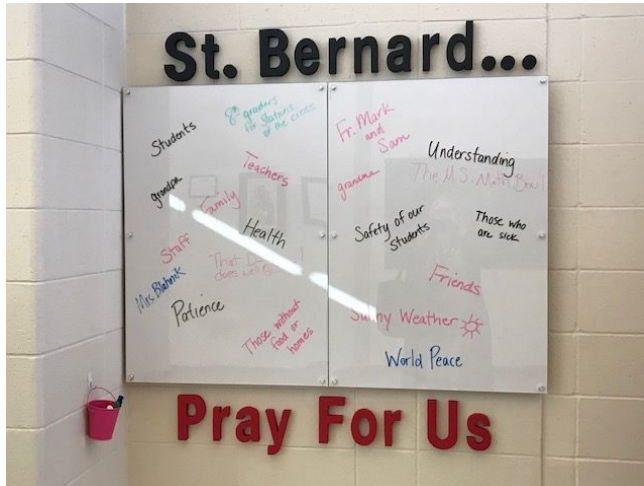 St. Bernard...
Students
8th graders
for Stations
of the cross
Teachers
grandpa
Family
Health
Staff
That
does well
Mrs.
Patience
Those without
food or
homes
Fr. Mark
and
Sam
Understanding
The M.S. Math Bowl
grandma
Safety of our
Students
Those who
are sick
Friends
Sunny Weather
World Peace
Pray For Us